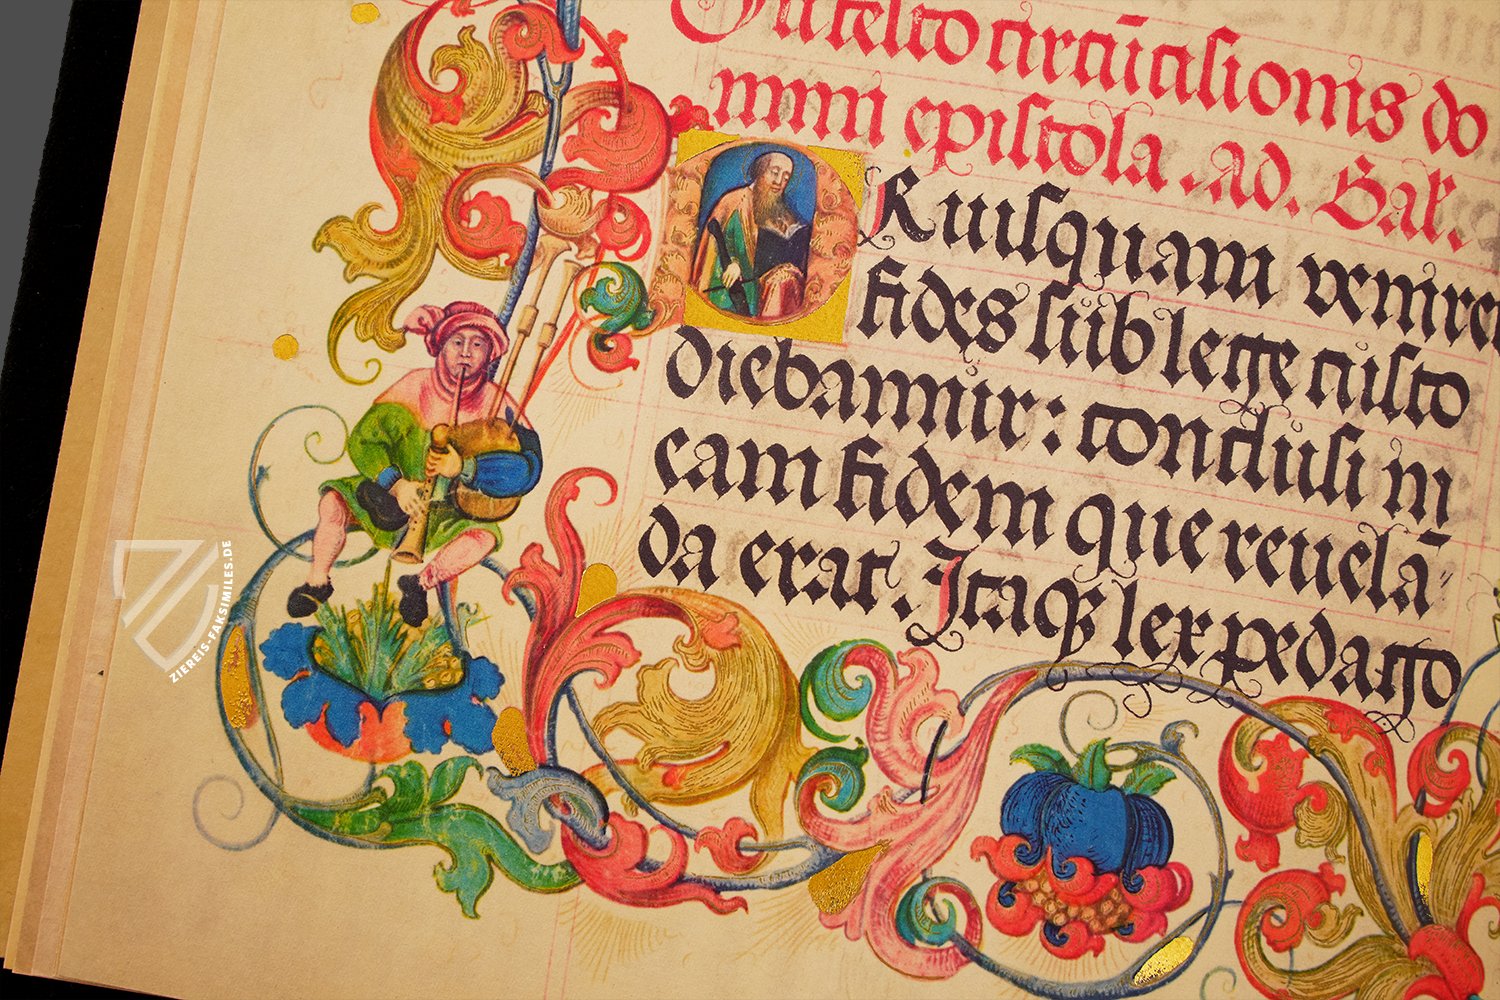 In festo circūcisionis do
mini epistola. Ad. Gal.
Priusquam veniret
fides sub lege custo
diebamur: conclusi in
eam fidem que reuelā
da erat. Itaqꝫ lex pedago
ZIEREIS-FAKSIMILES.DE